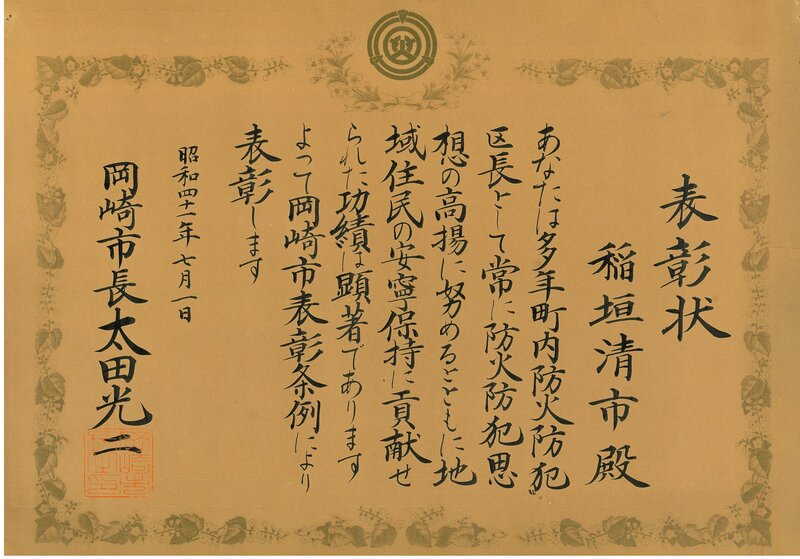 表彰状
稲垣清市殿
あなたは多年町内防火防犯
区長として常に防火防犯思
想の高揚に努めるとともに地
域住民の安寧保持に貢献せ
られた功績は顕著であります
よって岡崎市表彰条例により
表彰します
昭和四十一年七月一日
岡崎市長太田光二